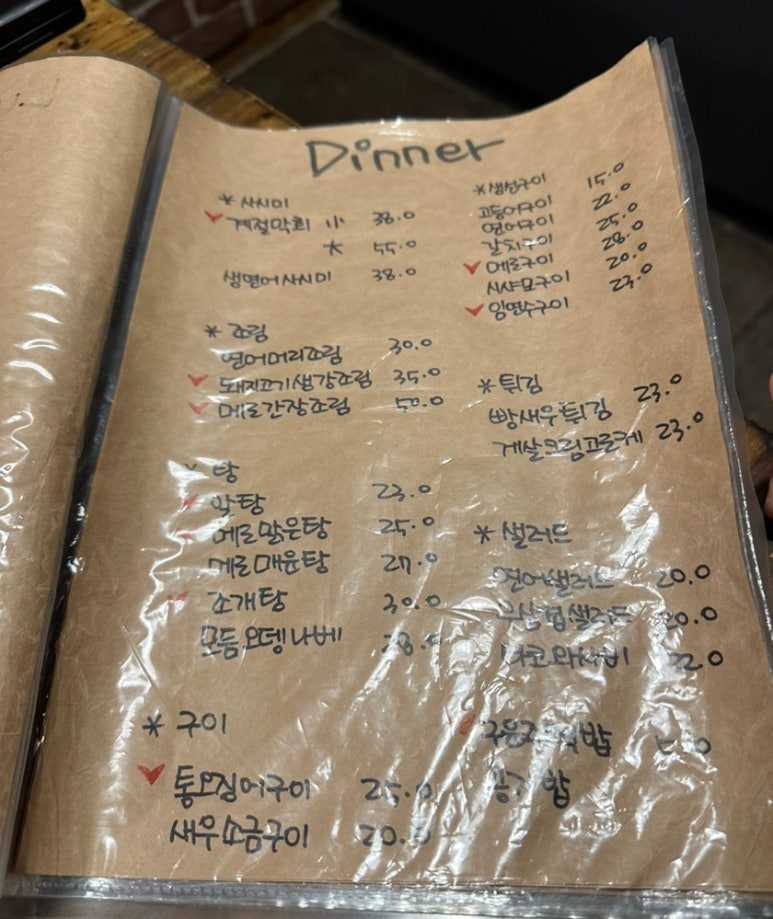 Dinner
* 사시미
계절막회 小 38.0
大 55.0
생연어사시미 38.0
* 조림
연어머리조림 30.0
돼지고기생강조림 35.0
메로간장조림 50.0
* 탕
알탕 23.0
메로맑은탕 25.0
메로매운탕 27.0
조개탕 30.0
모듬오뎅나베 28.0
* 구이
통오징어구이 25.0
새우소금구이 20.0
* 생선구이
고등어구이 15.0
연어구이 22.0
갈치구이 25.0
메로구이 28.0
시샤모구이 20.0
임연수구이 23.0
* 튀김
빵새우튀김 23.0
게살크림고로케 23.0
* 샐러드
연어샐러드 20.0
우삼겹샐러드 20.0
타코와사비 22.0
공기밥